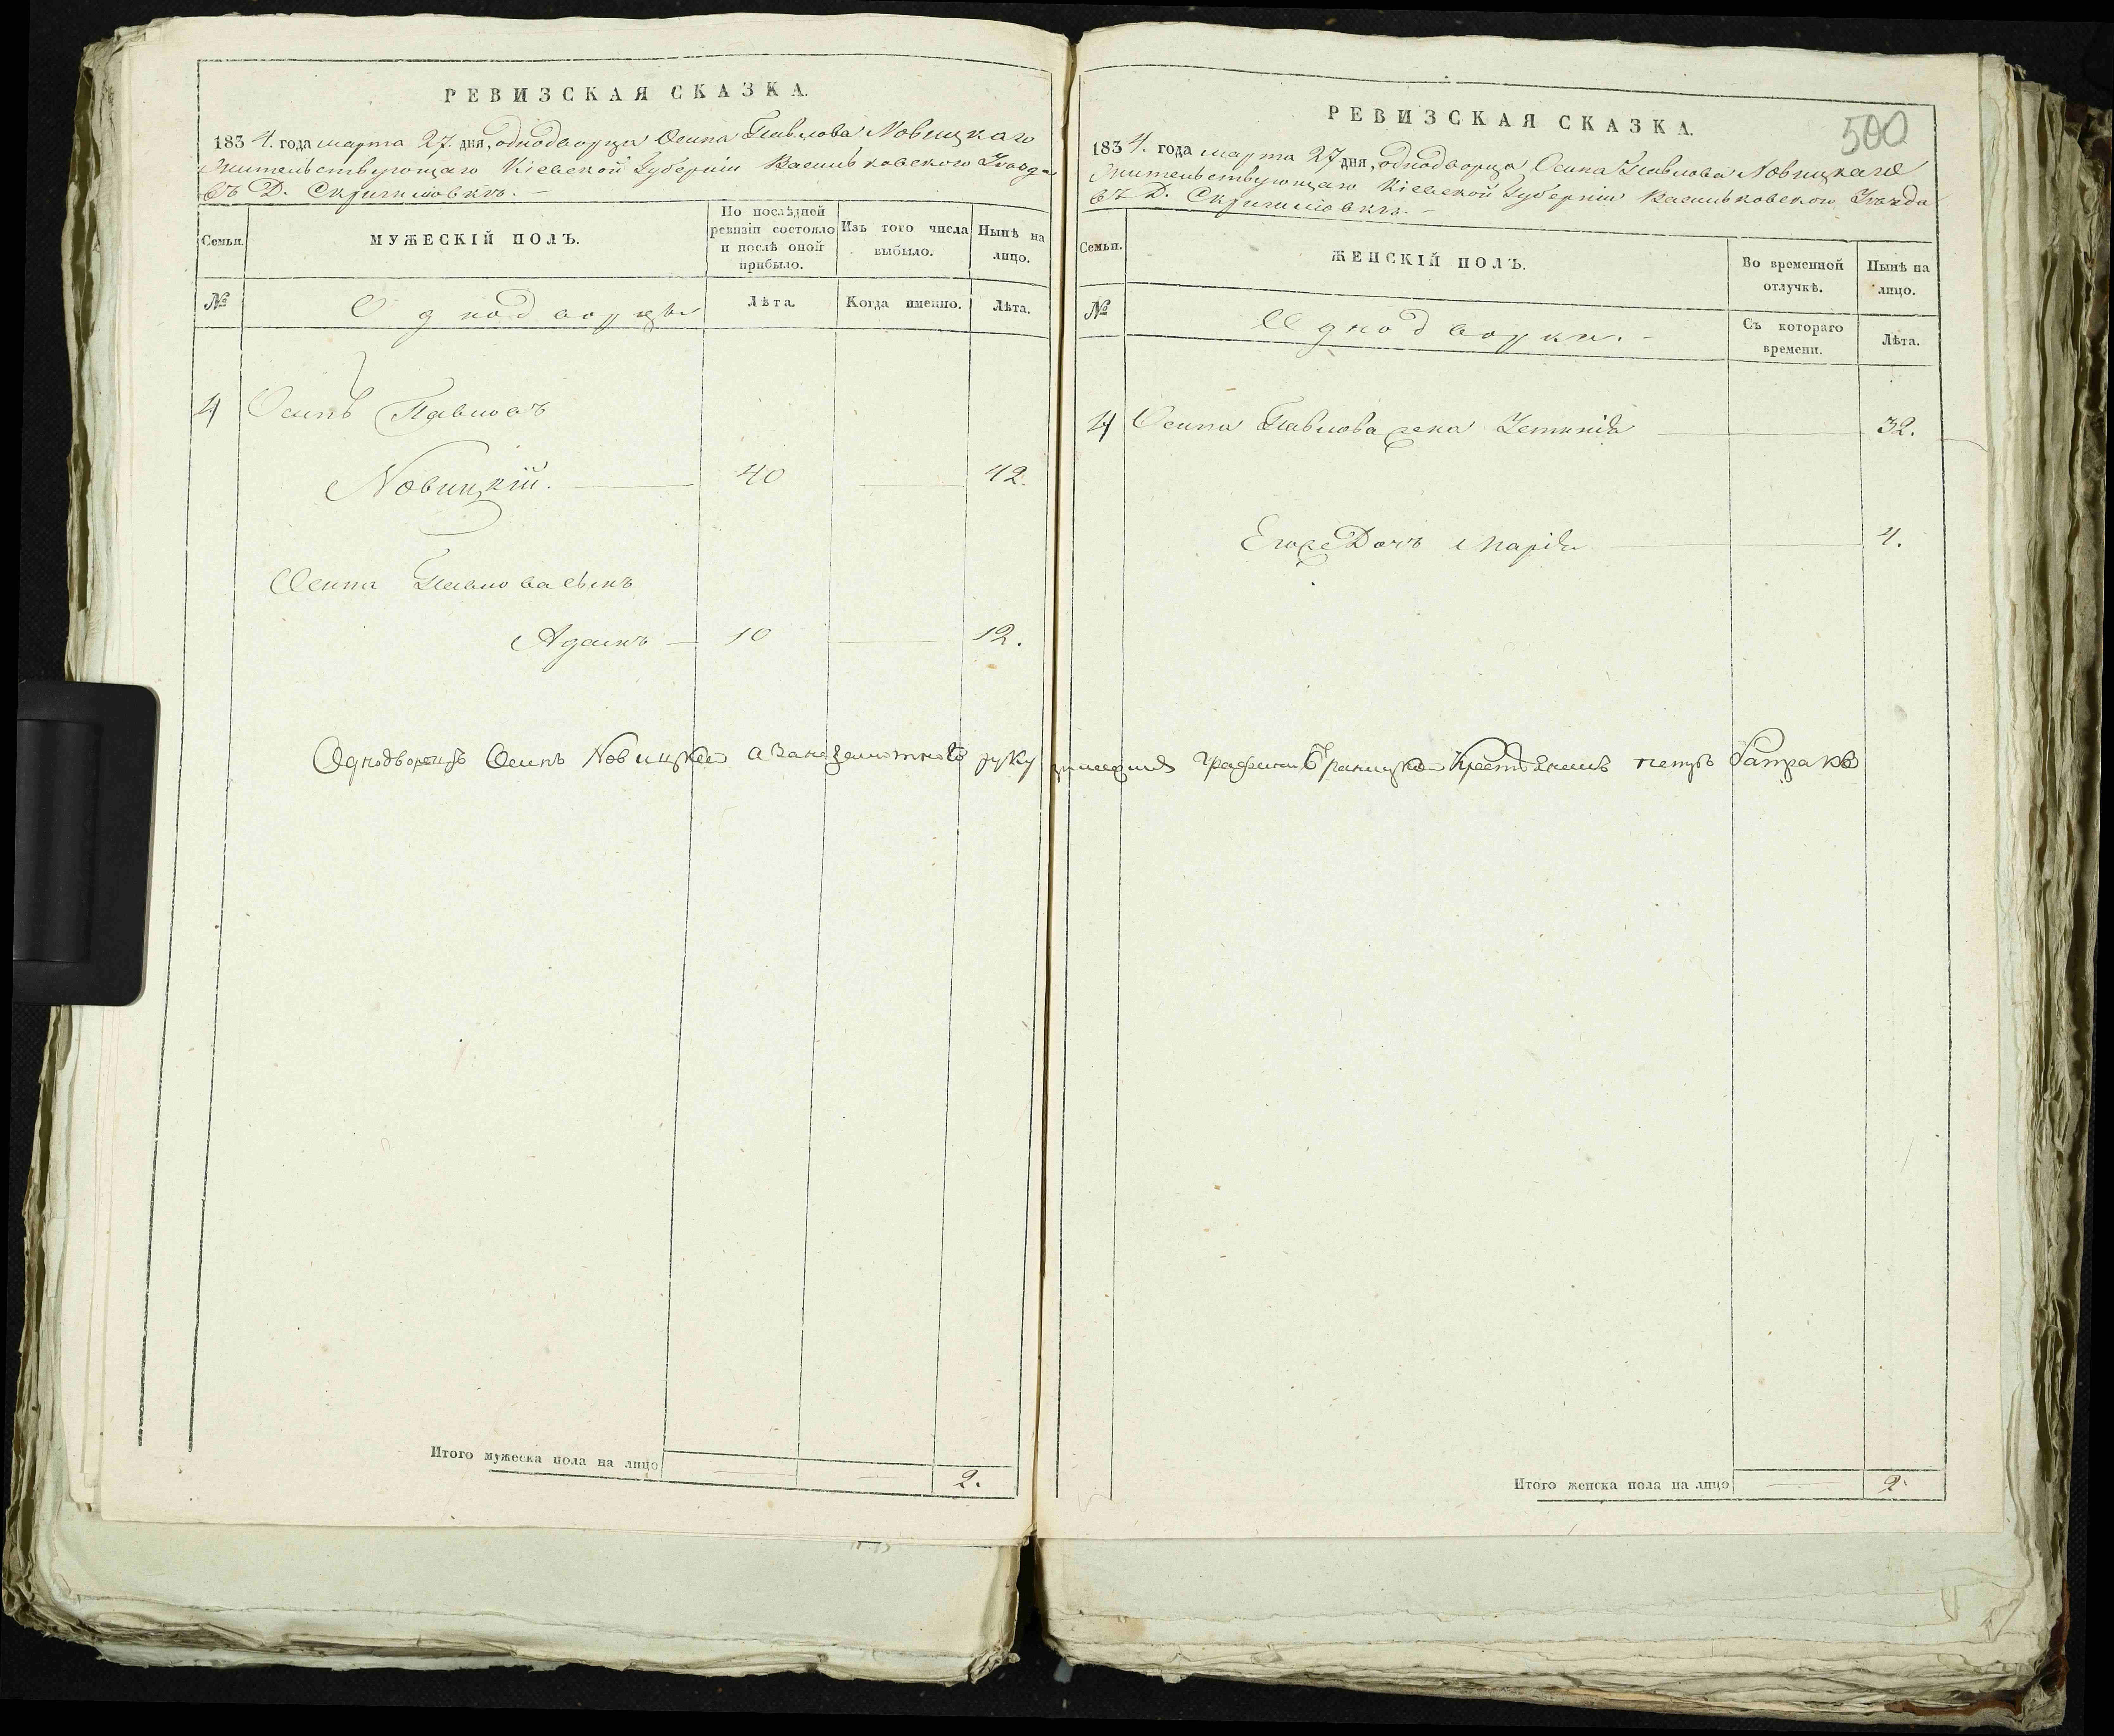 РЕВИЗСКАЯ СКАЗКА.
1834. года марта 27. дня, однодворца Осипа Павлова Новицкаго
Жительствующаго Кіевской Губерніи Васильковскаго Уезда
въ Д.
Семьи.
МУЖЕСКІЙ ПОЛЪ.
По послѣдней ревизіи состояло и послѣ оной прибыло.
Изъ того числа выбыло.
Нынѣ на лицо.
№
Однодворцы
Лѣта.
Когда именно.
Лѣта.
4 Осипъ Павловъ
Новицкій. 40 42.
Осипа Павлова сынъ
Адамъ 10 12.
Итого мужеска пола на лицо 2.
500
РЕВИЗСКАЯ СКАЗКА.
1834. года марта 27 дня, однодворца Осипа Павлова Новицкаго
Жительствующаго Кіевской Губерніи Васильковскаго Уезда
въ Д.
Семьи.
ЖЕНСКІЙ ПОЛЪ.
Во временной отлучкѣ.
Нынѣ на лицо.
№
Однодворки.
Съ котораго времени.
Лѣта.
4 Осипа Павлова жена 32.
Его же Дочь Марія 4.
Однодворецъ Осипъ Новицкій а руку Графини Браницкой
Итого женска пола на лицо 2.